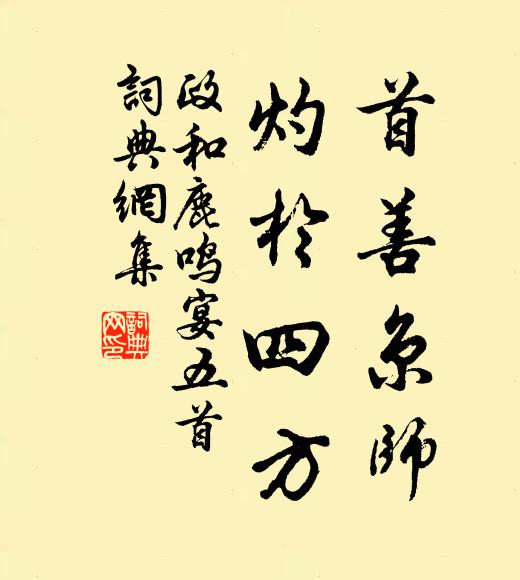 首善京師
灼於四方
政和鹿鳴宴五首
詞典網集
詞典網印